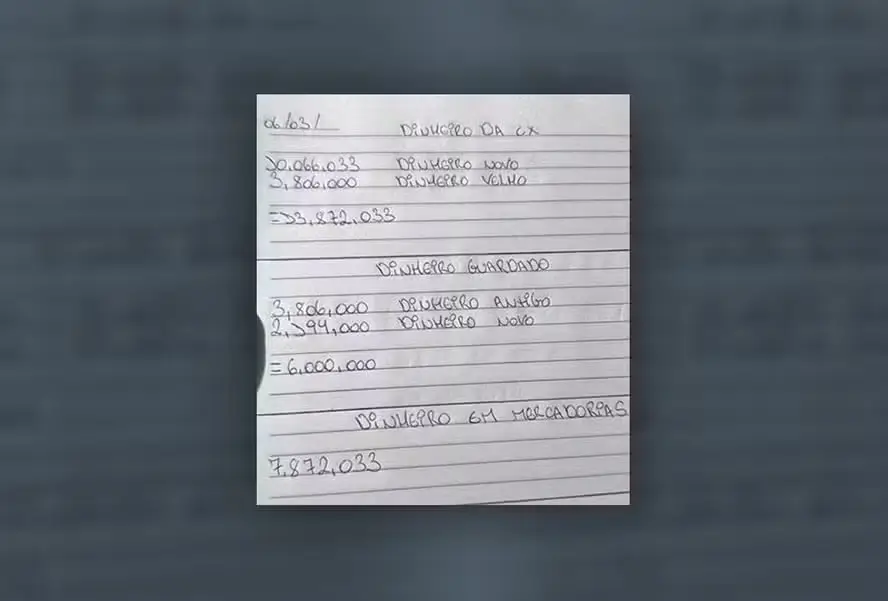 06/03/ DINHEIRO DA CX
10.066.033 DINHEIRO NOVO
3,806,000 DINHEIRO VELHO
=13,872,033
DINHEIRO GUARDADO
3,806,000 DINHEIRO ANTIGO
2,194,000 DINHEIRO NOVO
=6,000,000
DINHEIRO EM MERCADORIAS
7,872,033